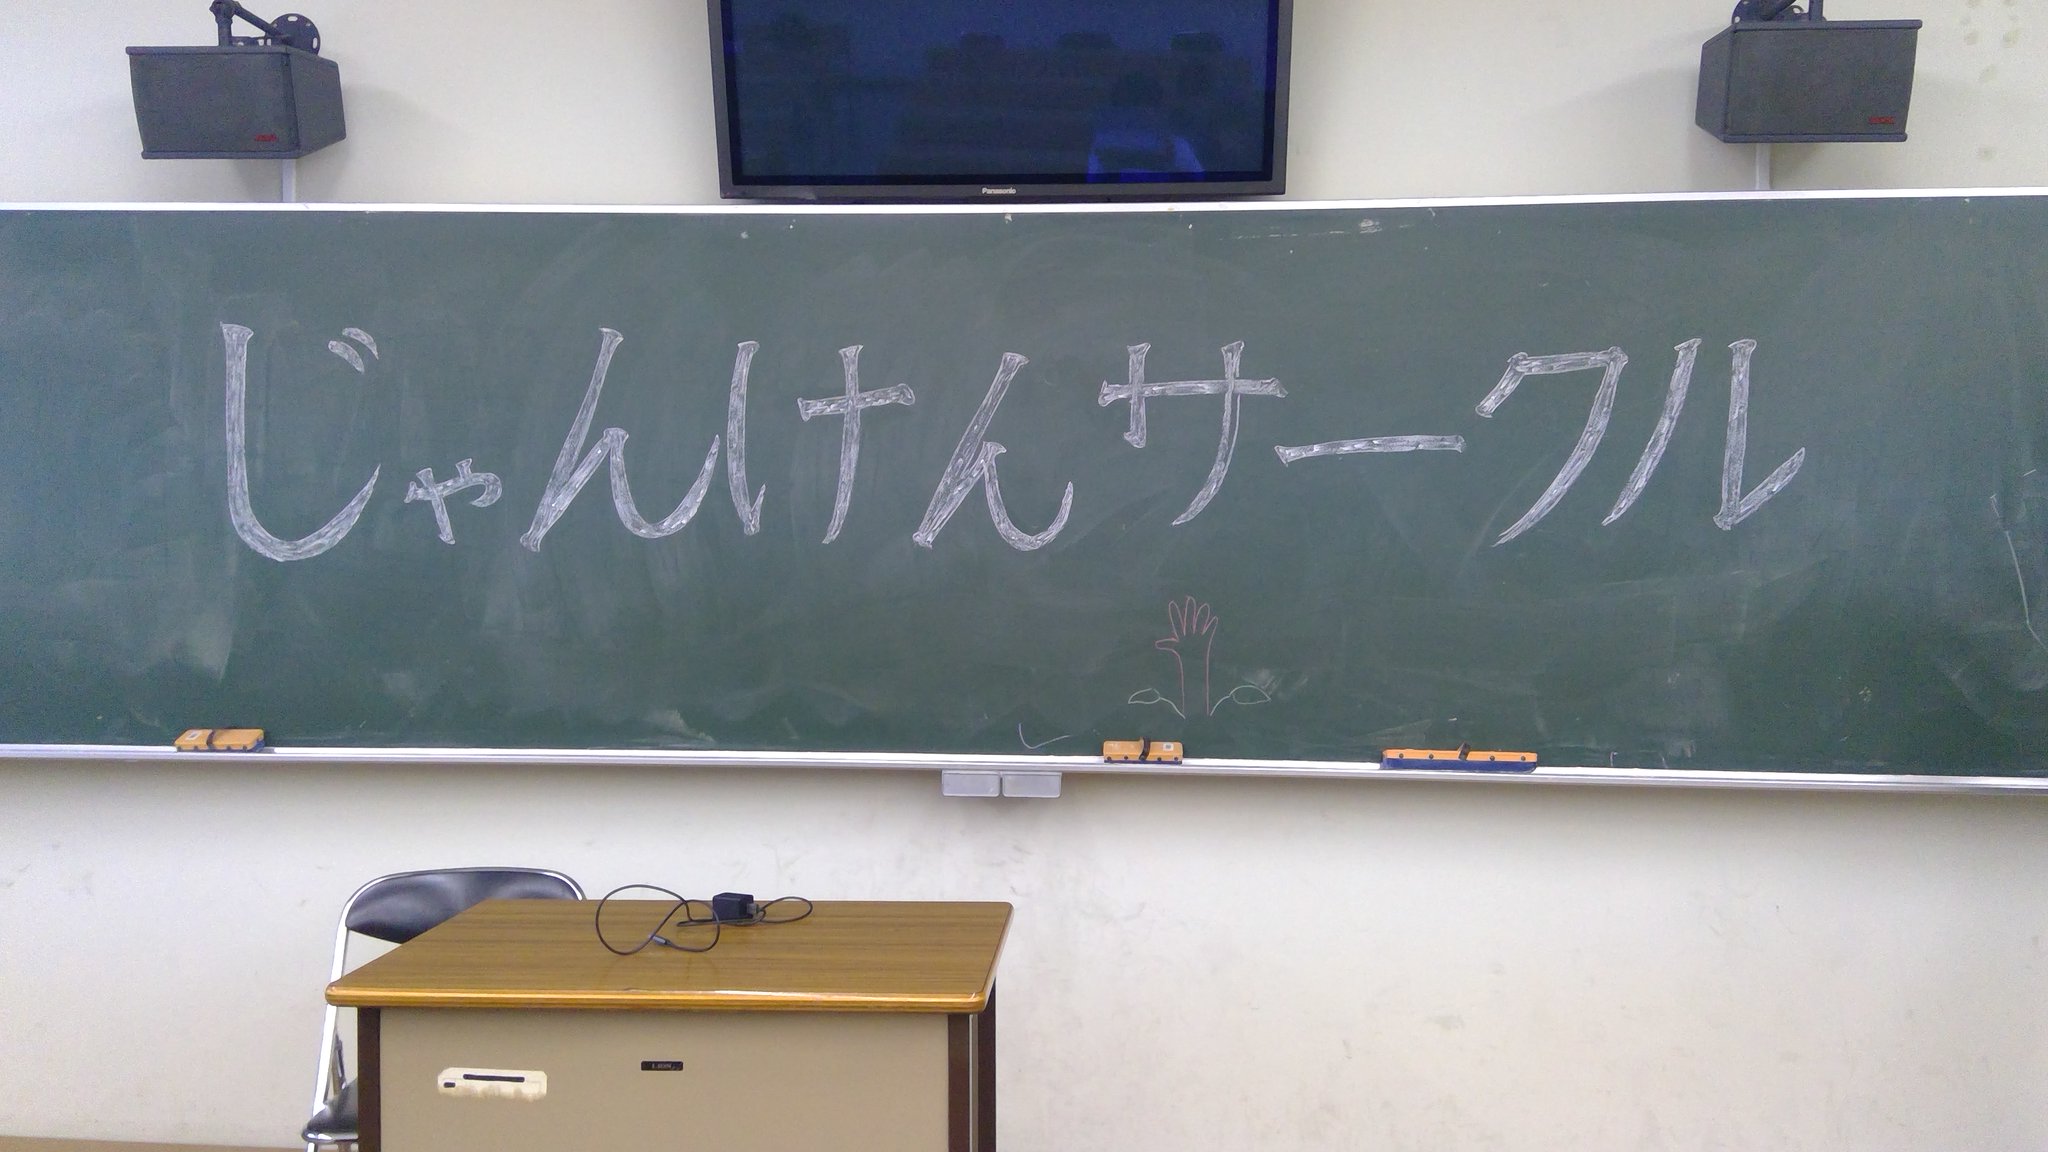 Panasonic
じゃんけんサークル
LION